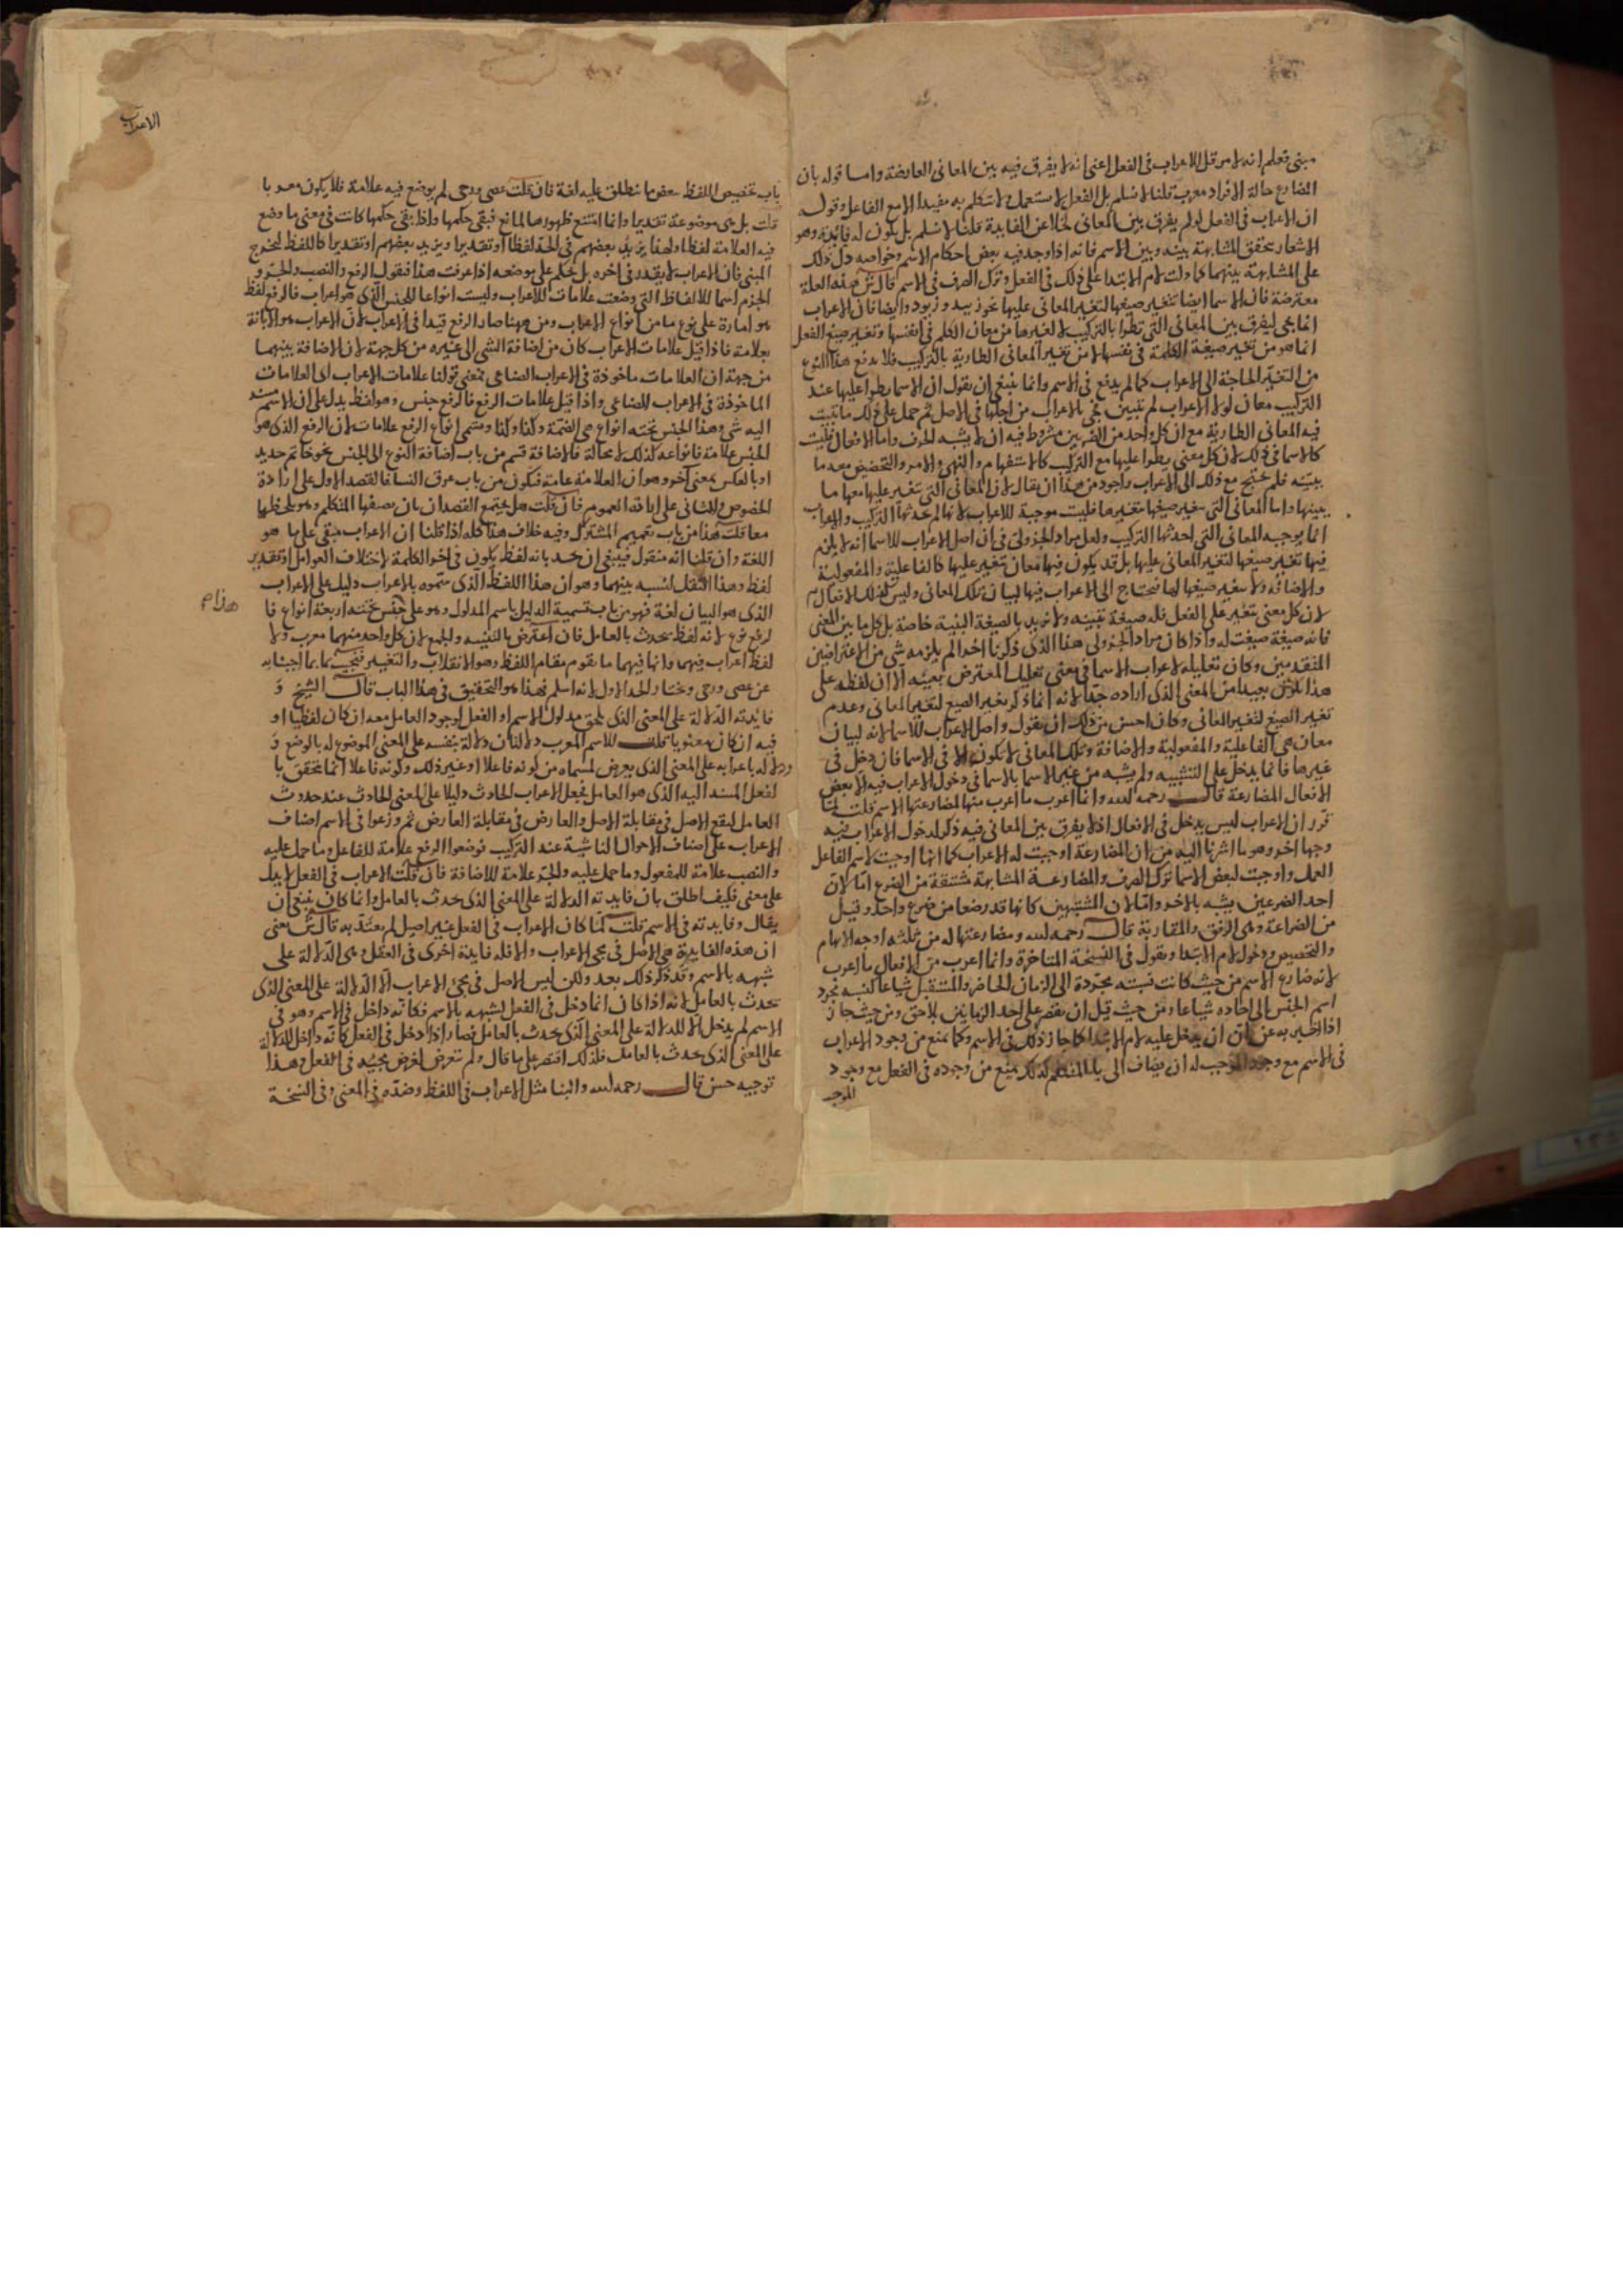 مبنى فتعلم انه لا مرقل الاعراب فى الفعل اعنى انه لا يفرق فيه بين المعانى العارضة واما قوله بان
المضارع حالة الافراد معرب قلنا لا نسلم بل الفعل لا يستعمل ولا يتكلم به مفيدا الا مع الفاعل وقوله
ان الاعراب فى الفعل لو لم يفرق بين المعانى لخلا عن الفايدة قلنا لا نسلم بل يكون له فايدة وهو
الاشعار بتحقق المشابهة بينه وبين الاسم فانه اذا وجد فيه بعض احكام الاسم وخواصه دل ذلك
على المشابهة بينهما كما دلت لام الابتدا على ذلك فى الفعل وترك الصرف فى الاسم قال ش هذه العلة
معترضة فان الاسما ايضا تتغير صيغها لتغير المعانى عليها نحو زييد وزيود وايضا فان الاعراب
انما يجى ليفرق بين المعانى التى تطرا بالتركيب لا لغيرها من معان الكلم فى انفسها وتغير صيغ الفعل
انما هو من تغير صيغة الكلمة فى نفسها لا من تغير المعانى الطارية بالتركيب فلا يدفع هذا النوع
من التغير الحاجة الى الاعراب كما لم يدفع فى الاسم وانما ينبغى ان يقول ان الاسما يطرا عليها عند
التركيب معان لولا الاعراب لم تتبين فجى بالاعراب من اجلها فى الاصل ثم حمل على ذلك ما ثبتت
فيه المعانى الطارية مع ان كل واحد من الضربين مشروط فيه ان لا يشبه الحرف واما الافعال فليست
كالاسما فى ذلك لان كل معنى يطرا عليها مع التركيب كالاستفهام والنهى والامر والتخصيص معه ما
يبينه فلم يحتج مع ذلك الى الاعراب واجود من هذا ان يقال لان المعانى التى تتغير عليها معها ما
يبينها واما المعانى التى تتغير صيغها بتغيرها فليست موجبة للاعراب لانها لم يحدثها التركيب والاعراب
انما يوجبه المعانى التى احدثها التركيب ولعل مراد الجزولى فى ان اصل الاعراب للاسما انه لا يلزم
فيها تغير صيغها لتغير المعانى عليها بل قد يكون فيها معان تتغير عليها كالفاعلية والمفعولية
والاضافة ولا تتغير صيغها لها فتحتاج الى الاعراب فيها لبيان تلك المعانى وليس كذلك الافعال
لان كل معنى يتغير على الفعل فله صيغة تبينه ولا نريد بالصيغة البنية خاصة بل كل ما بين المعنى
فانه صيغة صيغت له واذا كان مراد الجزولى هذا الذى ذكرنا اخرا لم يلزمه شى من الاعتراضين
المتقدمين وكان تعليله لاعراب الاسما فى معنى تعليل المعترض بعينه الا ان لفظه على
هذا يكون بعيدا من المعنى الذى اراده جدا لانه انما ذكر تغير الصيغ لتغير المعانى وعدم
تغير الصيغ لتغير المعانى وكان احسن من ذلك ان يقول واصل الاعراب للاسما لانه لبيان
معان هى الفاعلية والمفعولية والاضافة وتلك المعانى لا تكون الا فى الاسما فان دخل فى
غيرها فانما يدخل على التشبيه ولم يشبه من غير الاسما بالاسما فى دخول الاعراب فيه الا بعض
الافعال المضارعة قال رحمه الله وانما اعرب ما اعرب منها لمضارعتها الاسم قلت لما
تقرر ان الاعراب ليس يدخل فى الافعال اذ لا يفرق بين المعانى فيه ذكر لدخول الاعراب فيه
وجها اخر وهو ما اشرنا اليه من ان المضارعة اوجبت له الاعراب كما انها اوجبت لاسم الفاعل
العمل واوجبت لبعض الاسما ترك الصرف والمضارعة المشابهة مشتقة من الضرع اما لان
احد الضرعين يشبه بالاخر واما لان المشتبهين كانهما قد رضعا من ضرع واحد وقيل
من الضراعة وهى الرفق والمقاربة قال رحمه الله ومضارعتها له من ثلثة اوجه الابهام
والتخصيص ودخول لام الابتدا ونقول فى النسخة المتاخرة وانما اعرب من الافعال ما اعرب
لانه ضارع الاسم من حيث كانت نسبته مجردة الى الزمان الحاضر والمستقبل شياعا كنسبة مجرد
اسم الجنس الى احاده شياعا ومن حيث قبل ان يقصر على احد الزمانين بلاحق ومن حيث جاز
اذا اخبر به عن ان ان يدخل عليه لام الابتدا كما جاز ذلك فى الاسم وكما يمنع من وجود الاعراب
فى الاسم مع وجود الموجب له ان يضاف الى يا المتكلم كذلك يمنع من وجوده فى الفعل مع وجود
الموجب
الاعراب
باب تخصيص اللفظ ببعض ما ينطلق عليه لغة فان قلت عصى ورحى لم يوضع فيه علامة فلا يكون معربا
قلت بل هى موضوعة تقديرا وانما امتنع ظهورها لمانع فبقى حكمها واذا بقى حكمها كانت فى معنى ما وضع
فيه العلامة لفظا ولهذا يزيد بعضهم فى الحد لفظا او تقديرا ويزيد بعضهم او تقديرا كاللفظ ليخرج
المبنى فان الاعراب لا يقدر فى اخره بل يحكم على موضعه اذا عرفت هذا فنقول الرفع والنصب والجر و
الجزم اسما للالفاظ التى وضعت علامات للاعراب وليست انواعا للجنس الذى هو اعراب فالرفع لفظ
هو امارة على نوع ما من انواع الاعراب ومن ههنا صار الرفع قيدا فى الاعراب لان الاعراب هو الابانة
بعلامة فاذا قيل علامات الاعراب كان من اضافة الشى الى غيره من كل جهة لان الاضافة بينهما
من جهة ان العلامات ماخوذة فى الاعراب الصناعى فمعنى قولنا علامات الاعراب اى العلامات
الماخوذة فى الاعراب الصناعى واذا قيل علامات الرفع فالرفع جنس وهو لفظ يدل على ان الاسم مسند
اليه شى وهذا الجنس تحته انواع هى الضمة وكذا وكذا وتسمى انواع الرفع علامات لان الرفع الذى هو
الجنس علامة فانواعه كذلك لا محالة فالاضافة قسم من باب اضافة النوع الى الجنس نحو خاتم حديد
او بالعكس بمعنى اخر وهو ان العلامة عامة فتكون من باب عرق النسا فالقصد الاول على ارادة
الخصوص والثانى على ابقاء العموم فان قلت هل يجتمع القصدان بان يصفها المتكلم وهو يلحظها
معا قلت هذا من باب تعميم المشترك وفيه خلاف هذا كله اذا قلنا ان الاعراب مبقى على ما هو
اللغة وان قلنا انه منقول فينبغى ان يحد بانه لفظ يكون فى اخر الكلمة لاختلاف العوامل او تقدير
لفظ وهذا النقل لنسبة بينهما وهو ان هذا اللفظ الذى سموه بالاعراب دليل على الاعراب
هذا م
الذى هو البيان لغة فهو من باب تسمية الدليل باسم المدلول وهو على جنس تحته اربعة انواع فا
لرفع نوع لانه لفظ يحدث بالعامل فان اعترض بالتثنيه والجمع لان كل واحد منهما معرب ولا
لفظ اعراب فيهما وانما فيهما ما يقوم مقام اللفظ وهو الانقلاب والتغيير فنجيب بما اجبنا به
عن عصى ورحى ونختار الحد الاول لانه اسلم فهذا هو التحقيق فى هذا الباب قال الشيخ و
فايدته الدلالة على المعنى الذى يلحق مدلول الاسم او الفعل لوجود العامل معه ان كان لفظيا او
فيه ان كان معنويا قلت للاسم المعرب دلالتان دلالة بنفسه على المعنى الموضوع له بالوضع و
دلالة باعرابه على المعنى الذى يعرض لمسماه من كونه فاعلا او غير ذلك وكونه فاعلا انما يتحقق با
لفعل المسند اليه الذى هو العامل فجعل الاعراب الحادث دليلا على المعنى الحادث عند حدوث
العامل ليقع الاصل فى مقابلة الاصل والعارض فى مقابلة العارض ثم وزعوا فى الاسم اصناف
الاعراب على اصناف الاحوال الناشية عند التركيب فوضعوا الرفع علامة للفاعل وما حمل عليه
والنصب علامة للمفعول وما حمل عليه والجر علامة للاضافة فان قلت الاعراب فى الفعل لا يدل
على معنى فكيف اطلق بان فايدته الدلالة على المعنى الذى يحدث بالعامل وانما كان ينبغى ان
يقال وفايدته فى الاسم قلت لما كان الاعراب فى الفعل غير اصيل لم يعتد به قال ش يعنى
ان هذه الفايدة هى الاصل فى مجى الاعراب والا فله فايدة اخرى فى الفعل وهى الدلالة على
شبهه بالاسم وقد ذكر ذلك بعد ولكن ليس الاصل فى مجئ الاعراب الا الدلالة على المعنى الذى
يحدث بالعامل لانه اذا كان انما دخل فى الفعل لشبهه بالاسم فكانه داخل فى الاسم وهو فى
الاسم لم يدخل الا للدلالة على المعنى الذى يحدث بالعامل فصار اذا دخل فى الفعل كانه داخل للدلالة
على المعنى الذى يحدث بالعامل فلذلك اقتصر على ما قال ولم يتعرض لغرض مجيه فى الفعل وهذا
توجيه حسن قال رحمه الله والبنا مثل الاعراب فى اللفظ وضده فى المعنى وفى النسخة